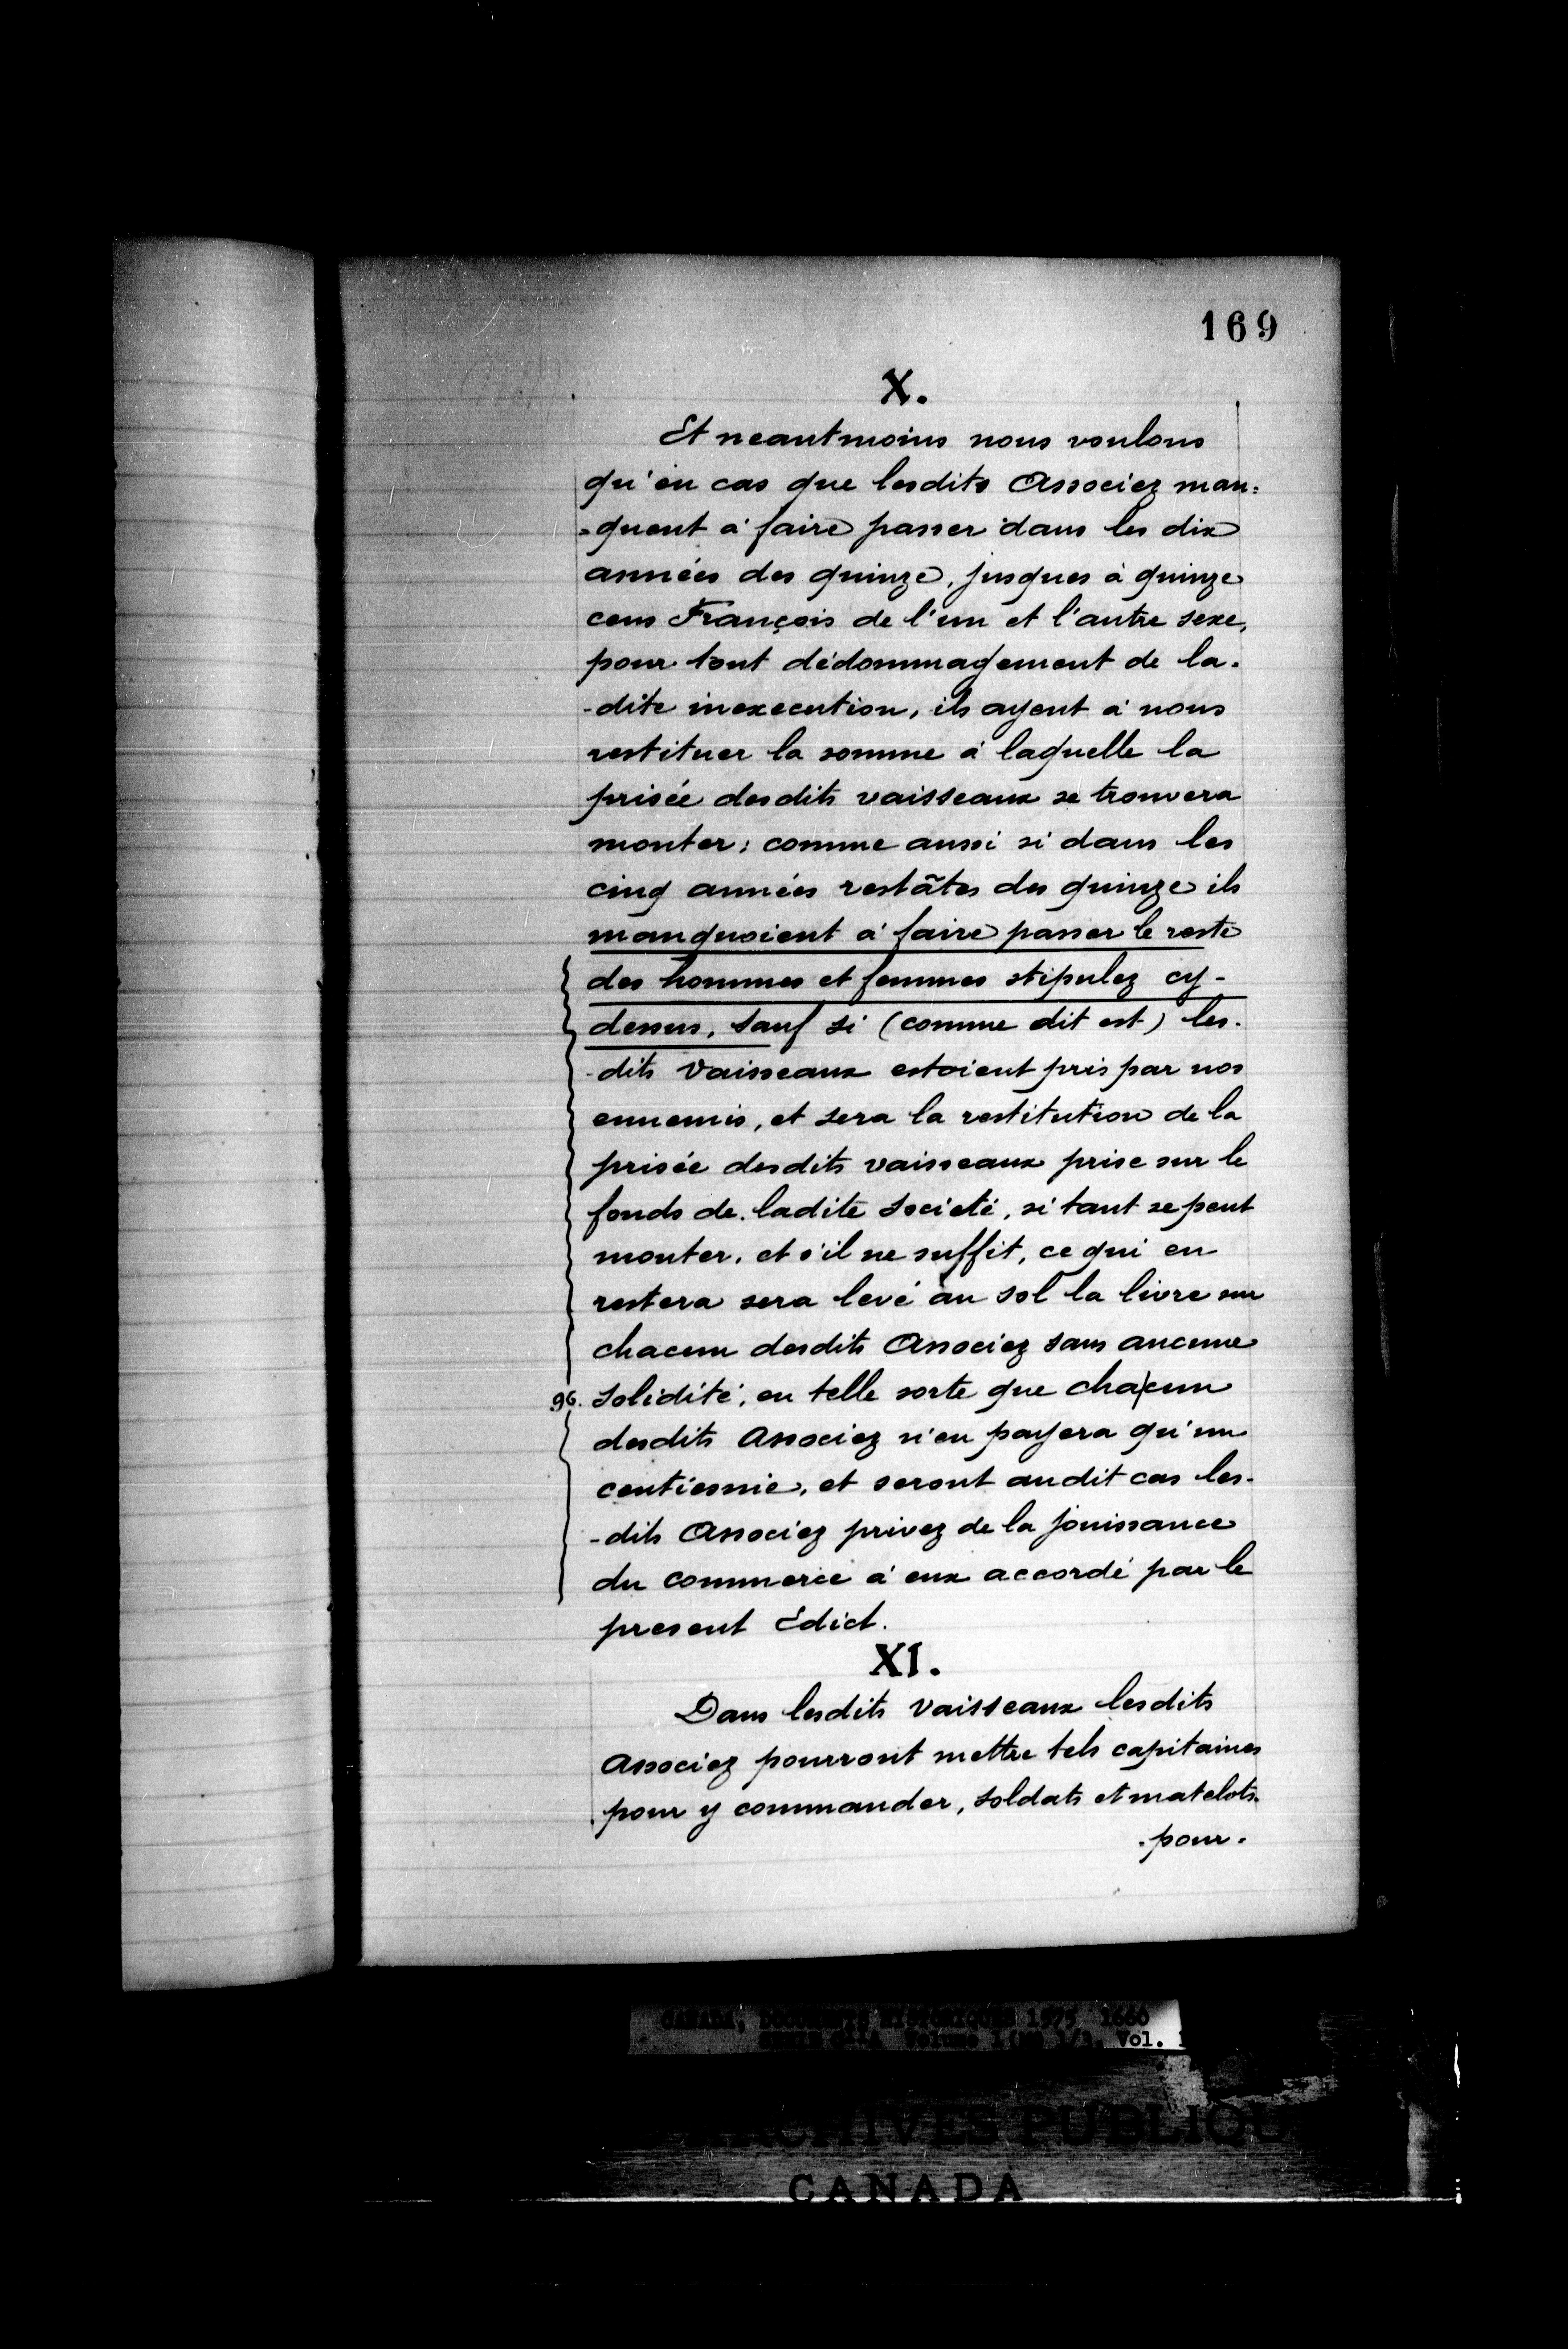 169
X.
Et neantmoins nous voulons
qu'en cas que lesdits Associez man=
=quent à faire passer dans les dix
années des quinze, jusques à quinze
cens François de l'un et l'autre sexe,
pour tout dédommagement de la-
-dite inexecution, ils ayent à nous
restituer la somme à laquelle la
prisée desdits vaisseaux se trouvera
monter: comme aussi si dans les
cinq années restãtes des quinze ils
manquoient à faire passer le reste
des hommes et femmes stipulez cy-
dessus, sauf si (comme dit est) les-
-dits Vaisseaux estoient pris par nos
ennemis, et sera la restitution de la
prisée desdits vaisseaux prise sur le
fonds de ladite Societé, si tant se peut
monter, et s'il ne suffit, ce qui en
restera sera levé au sol la livre sur
chacun desdits Associez sans aucune
96. Solidité, en telle sorte que cha|cun
desdits Associez n'en payera qu'un
centiesme, et seront audit cas les-
-dits Associez privez de la jouissance
du commerce à eux accordé par le
present Edict.
XI.
Dans lesdits Vaisseaux lesdits
Associez pourront mettre tels capitaines
pour y commander, soldats et matelots
.pour.
CANADA, DOCUMENTS HISTORIQUES 1575 1660
Vol. 1
ARCHIVES PUBLIQU
CANADA